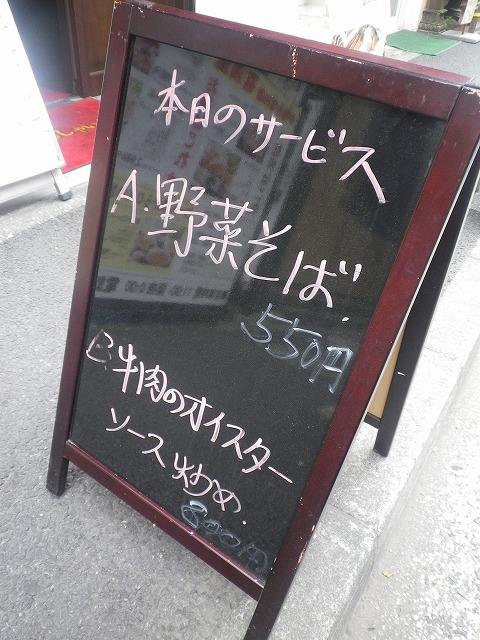 本日のサービス
A.野菜そば.
550円
B牛肉のオイスター
ソース炒め.
800円